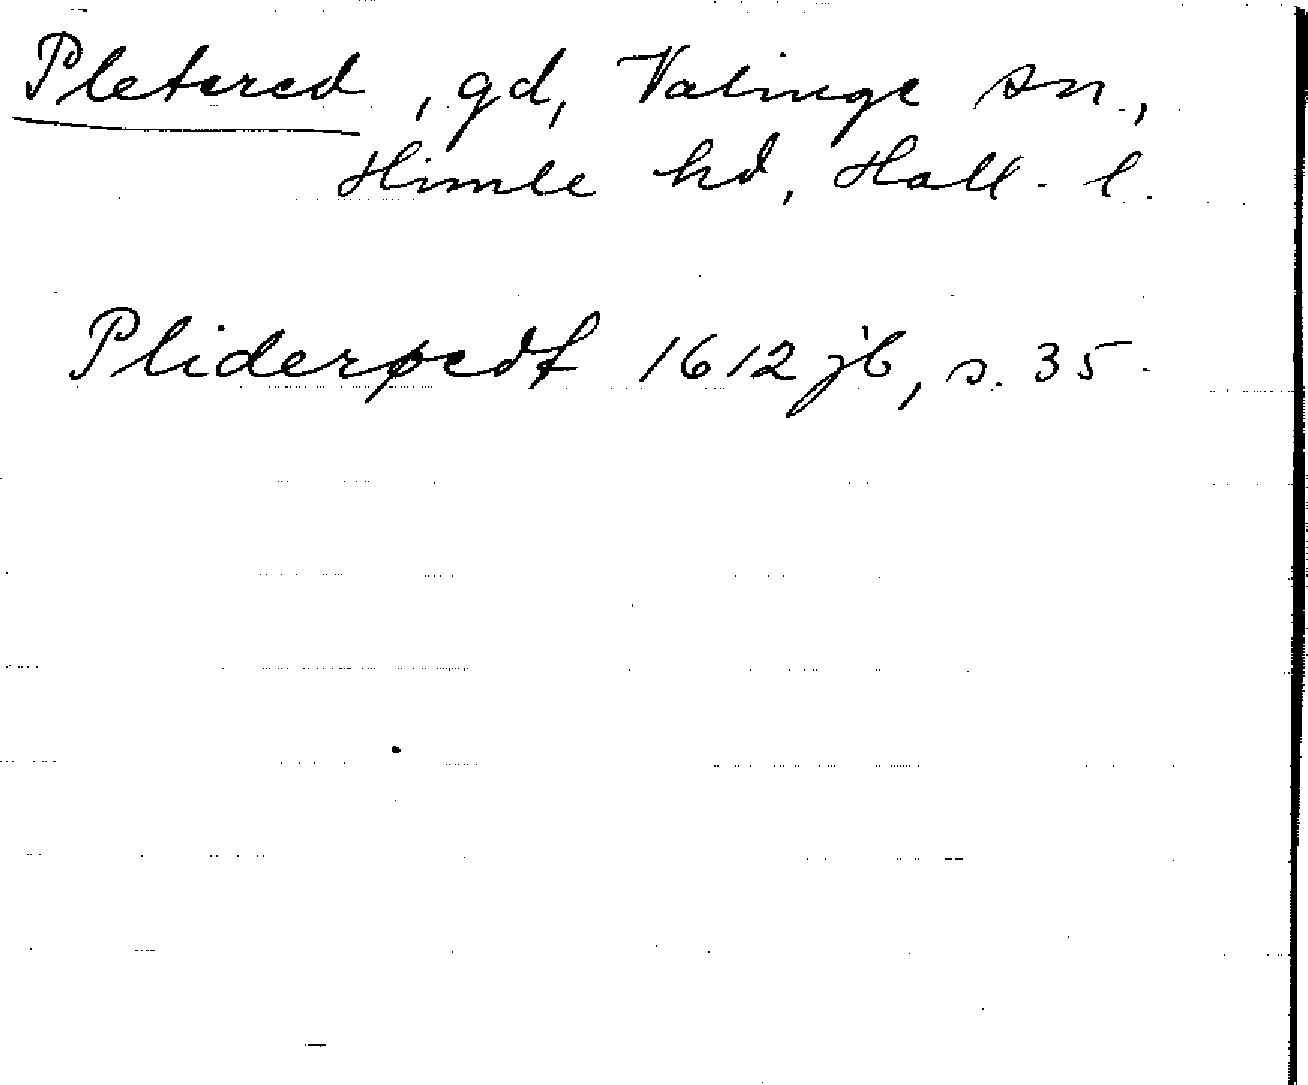 Pletered, gd, Valinge sn.,
Himle hd, Hall. l.
Pliderpedt 1612 jb, s. 35.